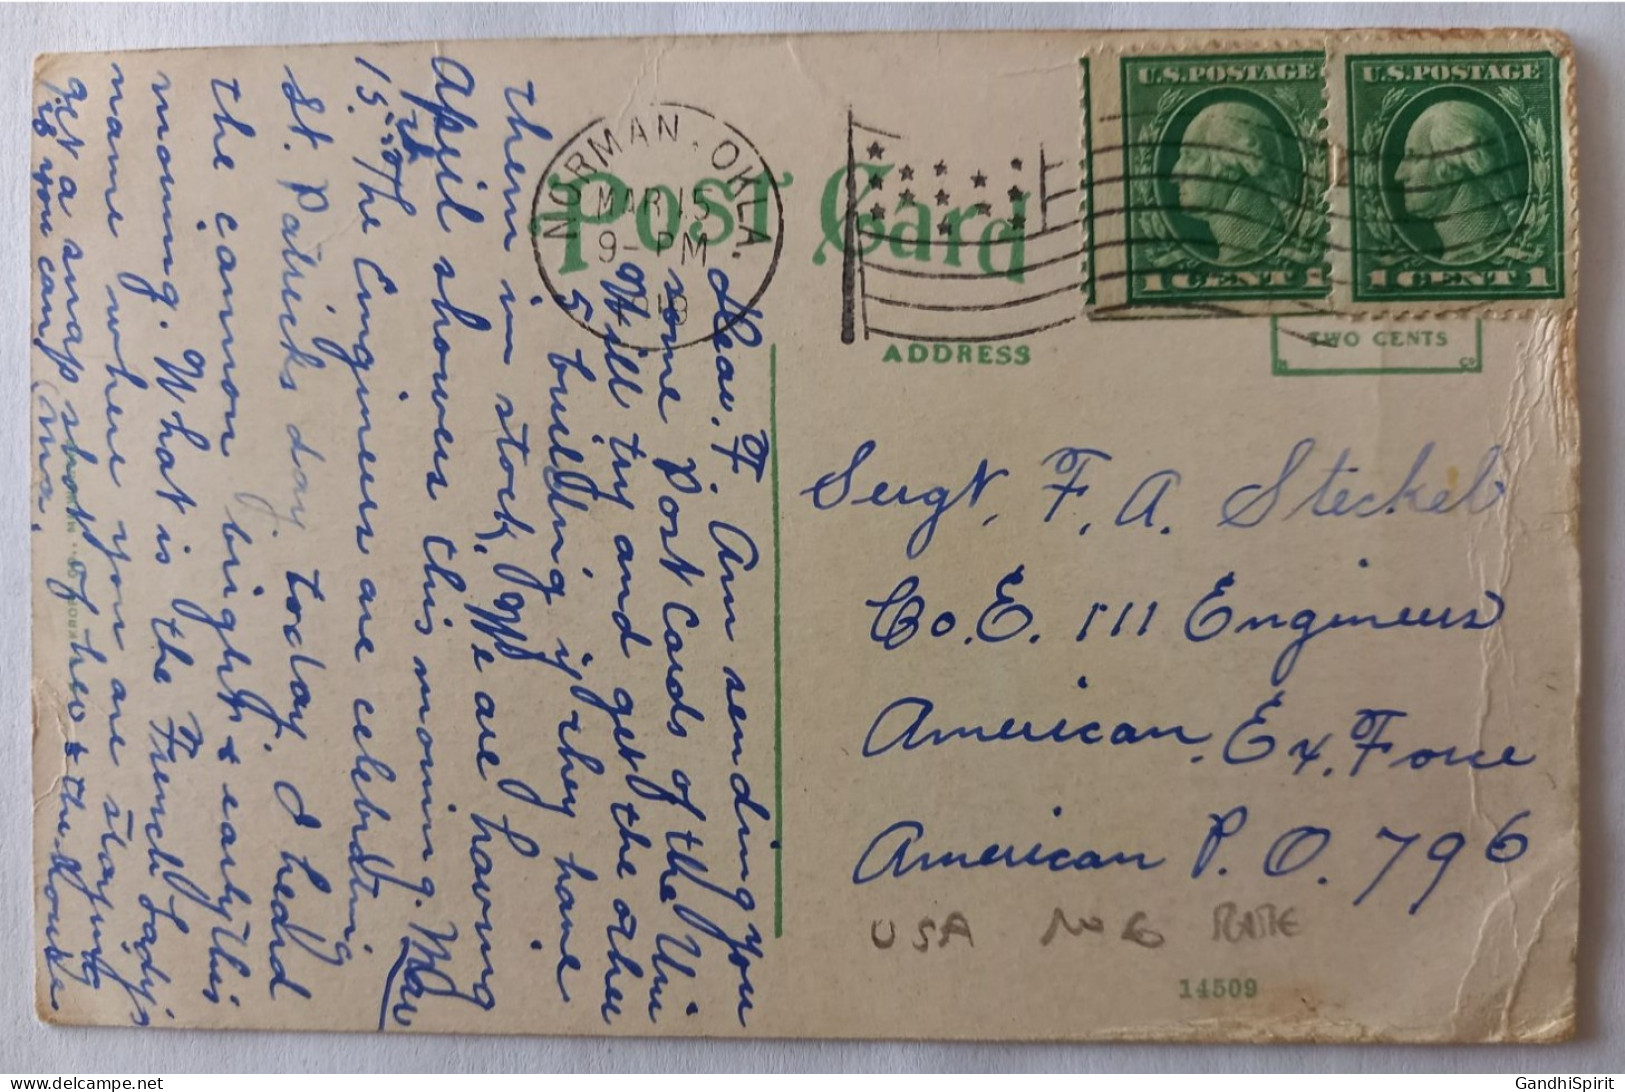 U.S.POSTAGE
1 CENT 1
U.S.POSTAGE
1 CENT 1
NORMAN. OKLA.
MAR 15
9-PM
Post Card
ADDRESS
TWO CENTS
Sergt. F. A. Steckel
Co. E. 111 Engineers
American. Ex. Force
American P. O. 796
USA
14509
Dear. F. Am sending you
some Post Cards of the Uni
Will try and get the other
5 building if they have
them in stock. We are having
April showers this morning. Mar
15. The Engineers are celebrating
St. Patricks day today. I heard
the cannon bright & early this
morning. What is the French Lady's
name where you are staying
get a snap shot of her & the house
if you can, Ma.
GandhiSpirit